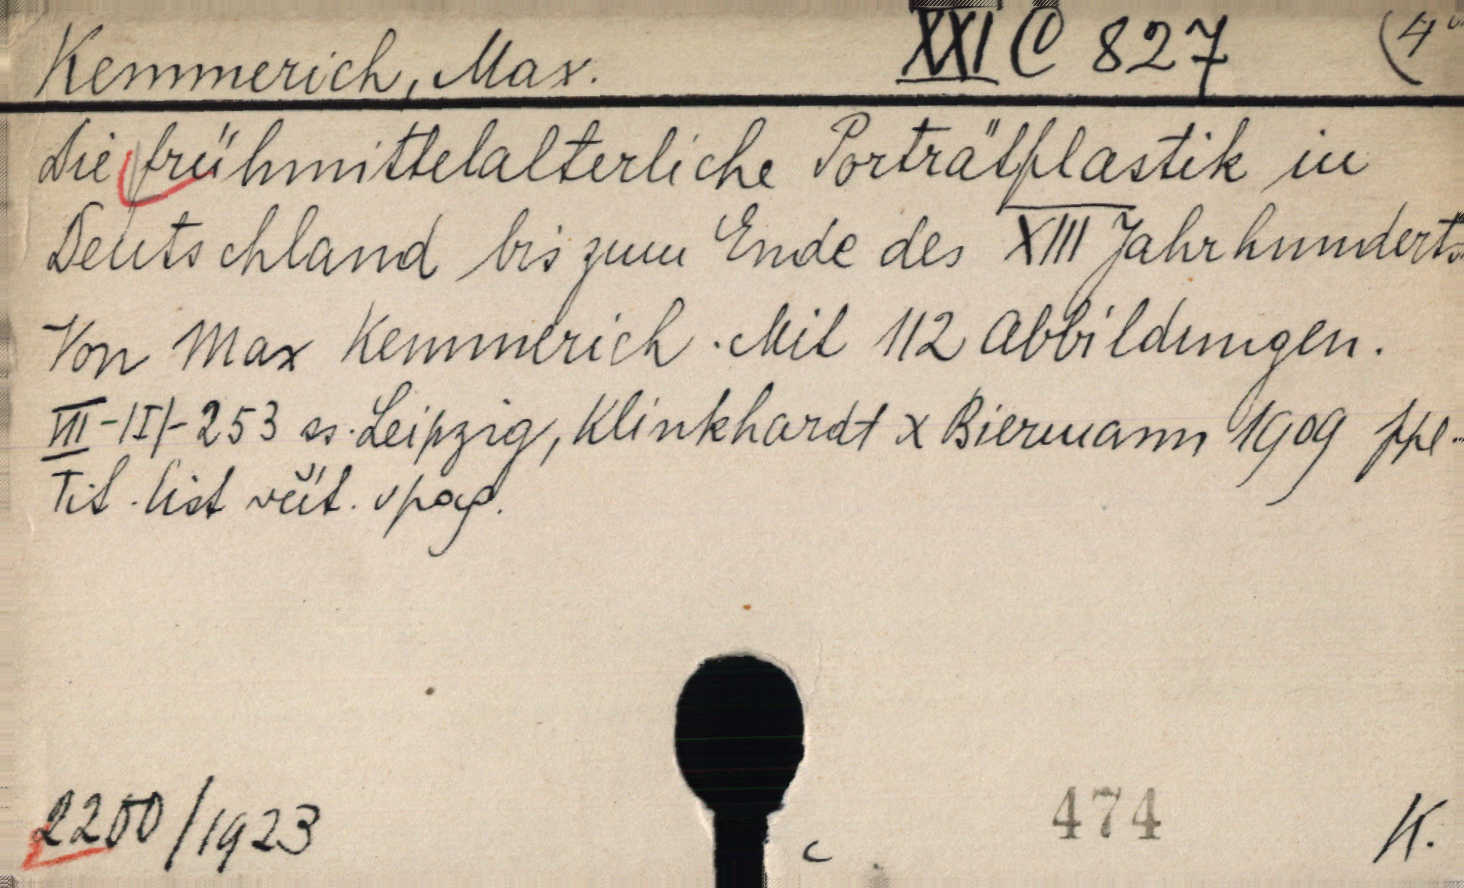 Kemmerich, Max. XXI C 827 (4°
Die frühmittelalterliche Porträtplastik in
Deutschland bis zum Ende des XIII Jahrhunderts.
Von Max Kemmerich. Mit 112 Abbildungen.
253 ss. Leipzig, Klinkhardt & Biermann 1909 ppl-
Tit. list věit. v pag.
2200/1923 474 K.